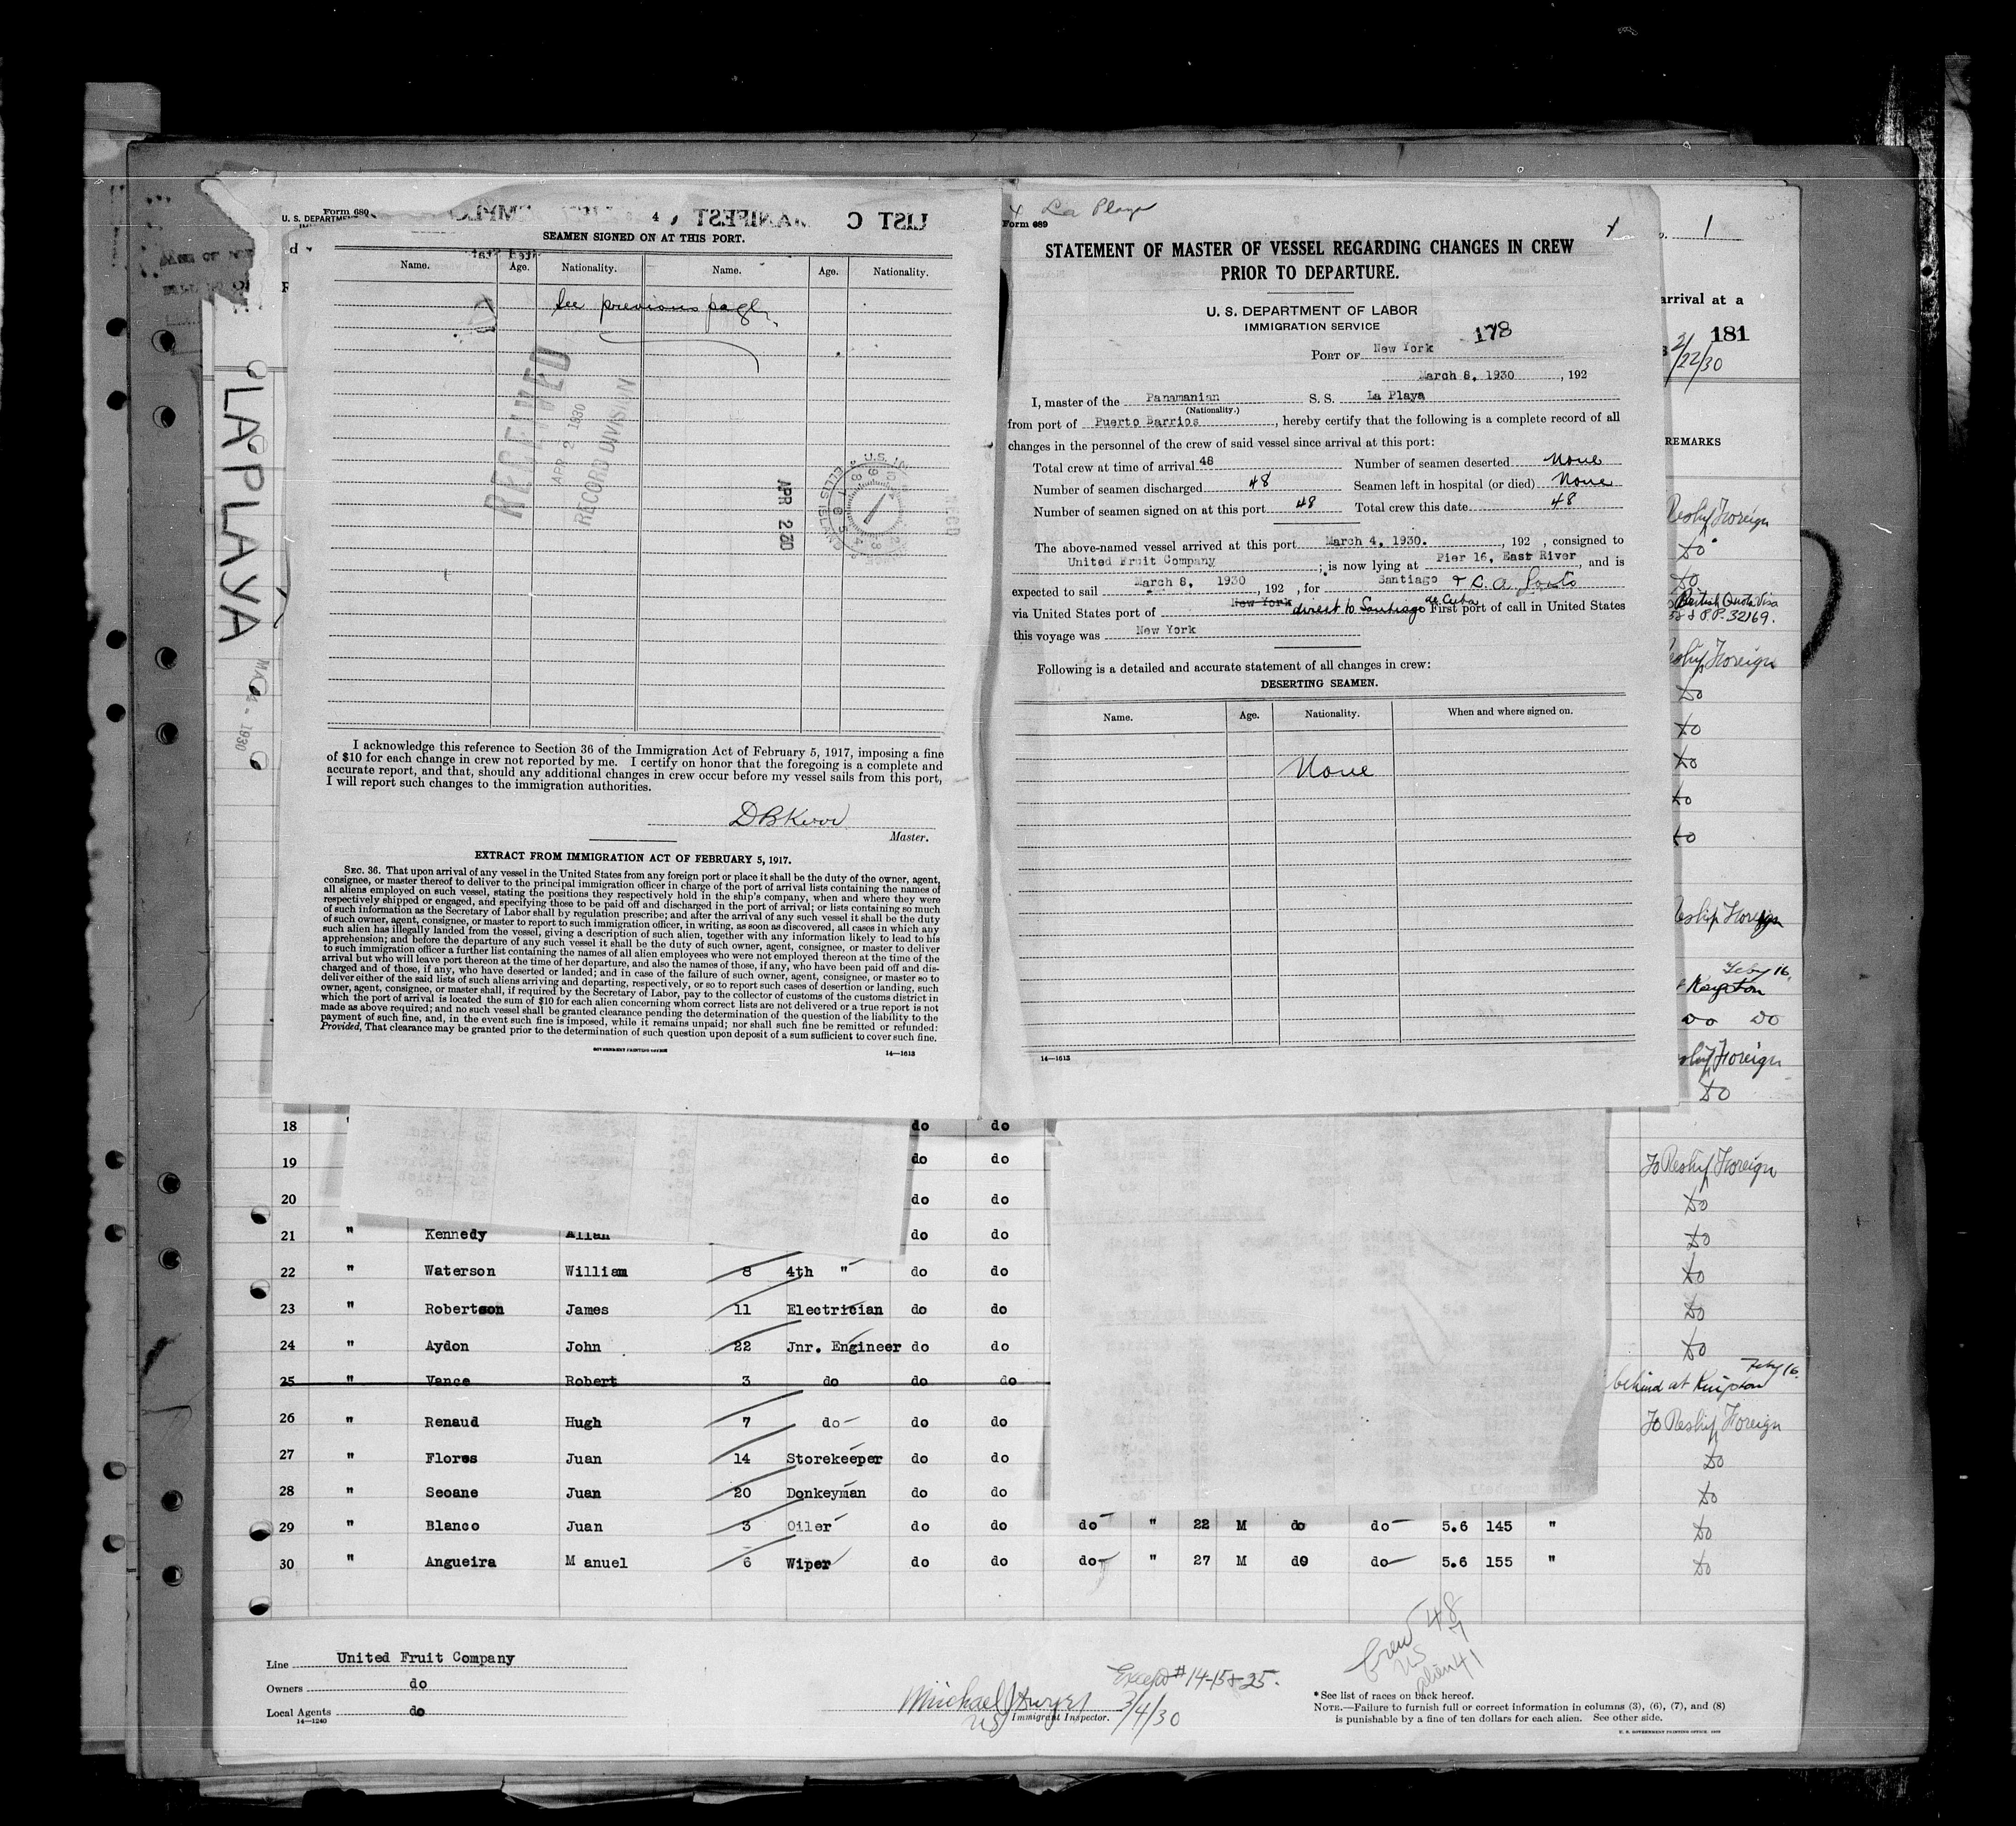 Form 689
U. S. DEPARTMENT
LIST C
MANIFEST
4
SEAMEN SIGNED ON AT THIS PORT.
Name. Age. Nationality. Name. Age. Nationality.
See previous page
RECEIVED
APR 2 1930
RECORD DIVISION
APR 2 30
ELLIS ISLAND
LA PLAYA
1930
I acknowledge this reference to Section 36 of the Immigration Act of February 5, 1917, imposing a fine
of $10 for each change in crew not reported by me. I certify on honor that the foregoing is a complete and
accurate report, and that, should any additional changes in crew occur before my vessel sails from this port,
I will report such changes to the immigration authorities.
D B Kerr
Master.
EXTRACT FROM IMMIGRATION ACT OF FEBRUARY 5, 1917.
SEC. 36. That upon arrival of any vessel in the United States from any foreign port or place it shall be the duty of the owner, agent,
consignee, or master thereof to deliver to the principal immigration officer in charge of the port of arrival lists containing the names of
all aliens employed on such vessel, stating the positions they respectively hold in the ship's company, when and where they were
respectively shipped or engaged, and specifying those to be paid off and discharged in the port of arrival; or lists containing so much
of such information as the Secretary of Labor shall by regulation prescribe; and after the arrival of any such vessel it shall be the duty
of such owner, agent, consignee, or master to report to such immigration officer, in writing, as soon as discovered, all cases in which any
such alien has illegally landed from the vessel, giving a description of such alien, together with any information likely to lead to his
apprehension; and before the departure of any such vessel it shall be the duty of such owner, agent, consignee, or master to deliver
to such immigration officer a further list containing the names of all alien employees who were not employed thereon at the time of the
arrival but who will leave port thereon at the time of her departure, and also the names of those, if any, who have been paid off and dis-
charged and of those, if any, who have deserted or landed; and in case of the failure of such owner, agent, consignee, or master so to
deliver either of the said lists of such aliens arriving and departing, respectively, or so to report such cases of desertion or landing, such
owner, agent, consignee, or master shall, if required by the Secretary of Labor, pay to the collector of customs of the customs district in
which the port of arrival is located the sum of $10 for each alien concerning whom correct lists are not delivered or a true report is not
made as above required; and no such vessel shall be granted clearance pending the determination of the question of the liability to the
payment of such fine, and, in the event such fine is imposed, while it remains unpaid; nor shall such fine be remitted or refunded:
Provided, That clearance may be granted prior to the determination of such question upon deposit of a sum sufficient to cover such fine.
GOVERNMENT PRINTING OFFICE
14—1613
La Playa
Form 689
STATEMENT OF MASTER OF VESSEL REGARDING CHANGES IN CREW
PRIOR TO DEPARTURE.
U. S. DEPARTMENT OF LABOR
IMMIGRATION SERVICE
178
PORT OF New York
March 8, 1930 , 192
I, master of the Panamanian S. S. La Playa
(Nationality.)
from port of Puerto Barrios, hereby certify that the following is a complete record of all
changes in the personnel of the crew of said vessel since arrival at this port:
Total crew at time of arrival 48 Number of seamen deserted None
Number of seamen discharged 48 Seamen left in hospital (or died) None
Number of seamen signed on at this port 48 Total crew this date 48
The above-named vessel arrived at this port March 4, 1930. , 192 , consigned to
United Fruit Company ; is now lying at Pier 16, East River , and is
expected to sail March 8, 1930 , 192 , for Santiago & C. A. Ports
via United States port of New York direct to Santiago de Cuba First port of call in United States
this voyage was New York
Following is a detailed and accurate statement of all changes in crew:
DESERTING SEAMEN.
Name. Age. Nationality. When and where signed on.
None
14—1613
1
arrival at a
181
2/22/30
REMARKS
Reship Foreign
Do
Do
British Quota Visa
P.P. 32169.
Reship Foreign
Do
Do
Do
Do
Do
Reship Foreign
Feby 16.
Kingston
Do Do
Reship Foreign
Do
18 " do do
19 do do To Reship Foreign
20 do do Do
21 " Kennedy Allan do do Do
22 " Waterson William 8 4th " do do Do
23 " Robertson James 11 Electrician do do Do
24 " Aydon John 22 Jnr. Engineer do do Do
25 " Vance Robert 3 do do do behind at Kingston Feby 16.
26 " Renaud Hugh 7 do do do To Reship Foreign
27 " Flores Juan 14 Storekeeper do do Do
28 " Seoane Juan 20 Donkeyman do do Do
29 " Blanco Juan 3 Oiler do do do " 22 M do do 5.6 145 " Do
30 " Angueira Manuel 6 Wiper do do do " 27 M do do 5.6 155 " Do
Crew 48
US 7
alien 41
Line United Fruit Company
Owners do
Local Agents do
14—1240
Except # 14-15 & 25.
Michael J Dwyer
US
Immigrant Inspector.
3/4/30
* See list of races on back hereof.
NOTE.—Failure to furnish full or correct information in columns (3), (6), (7), and (8)
is punishable by a fine of ten dollars for each alien. See other side.
U. S. GOVERNMENT PRINTING OFFICE